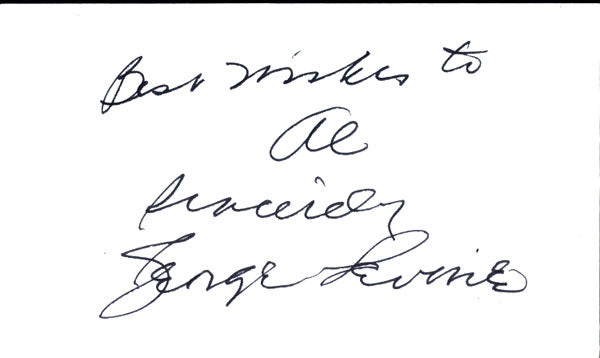 Best wishes to
Al
Sincerely
George Levine